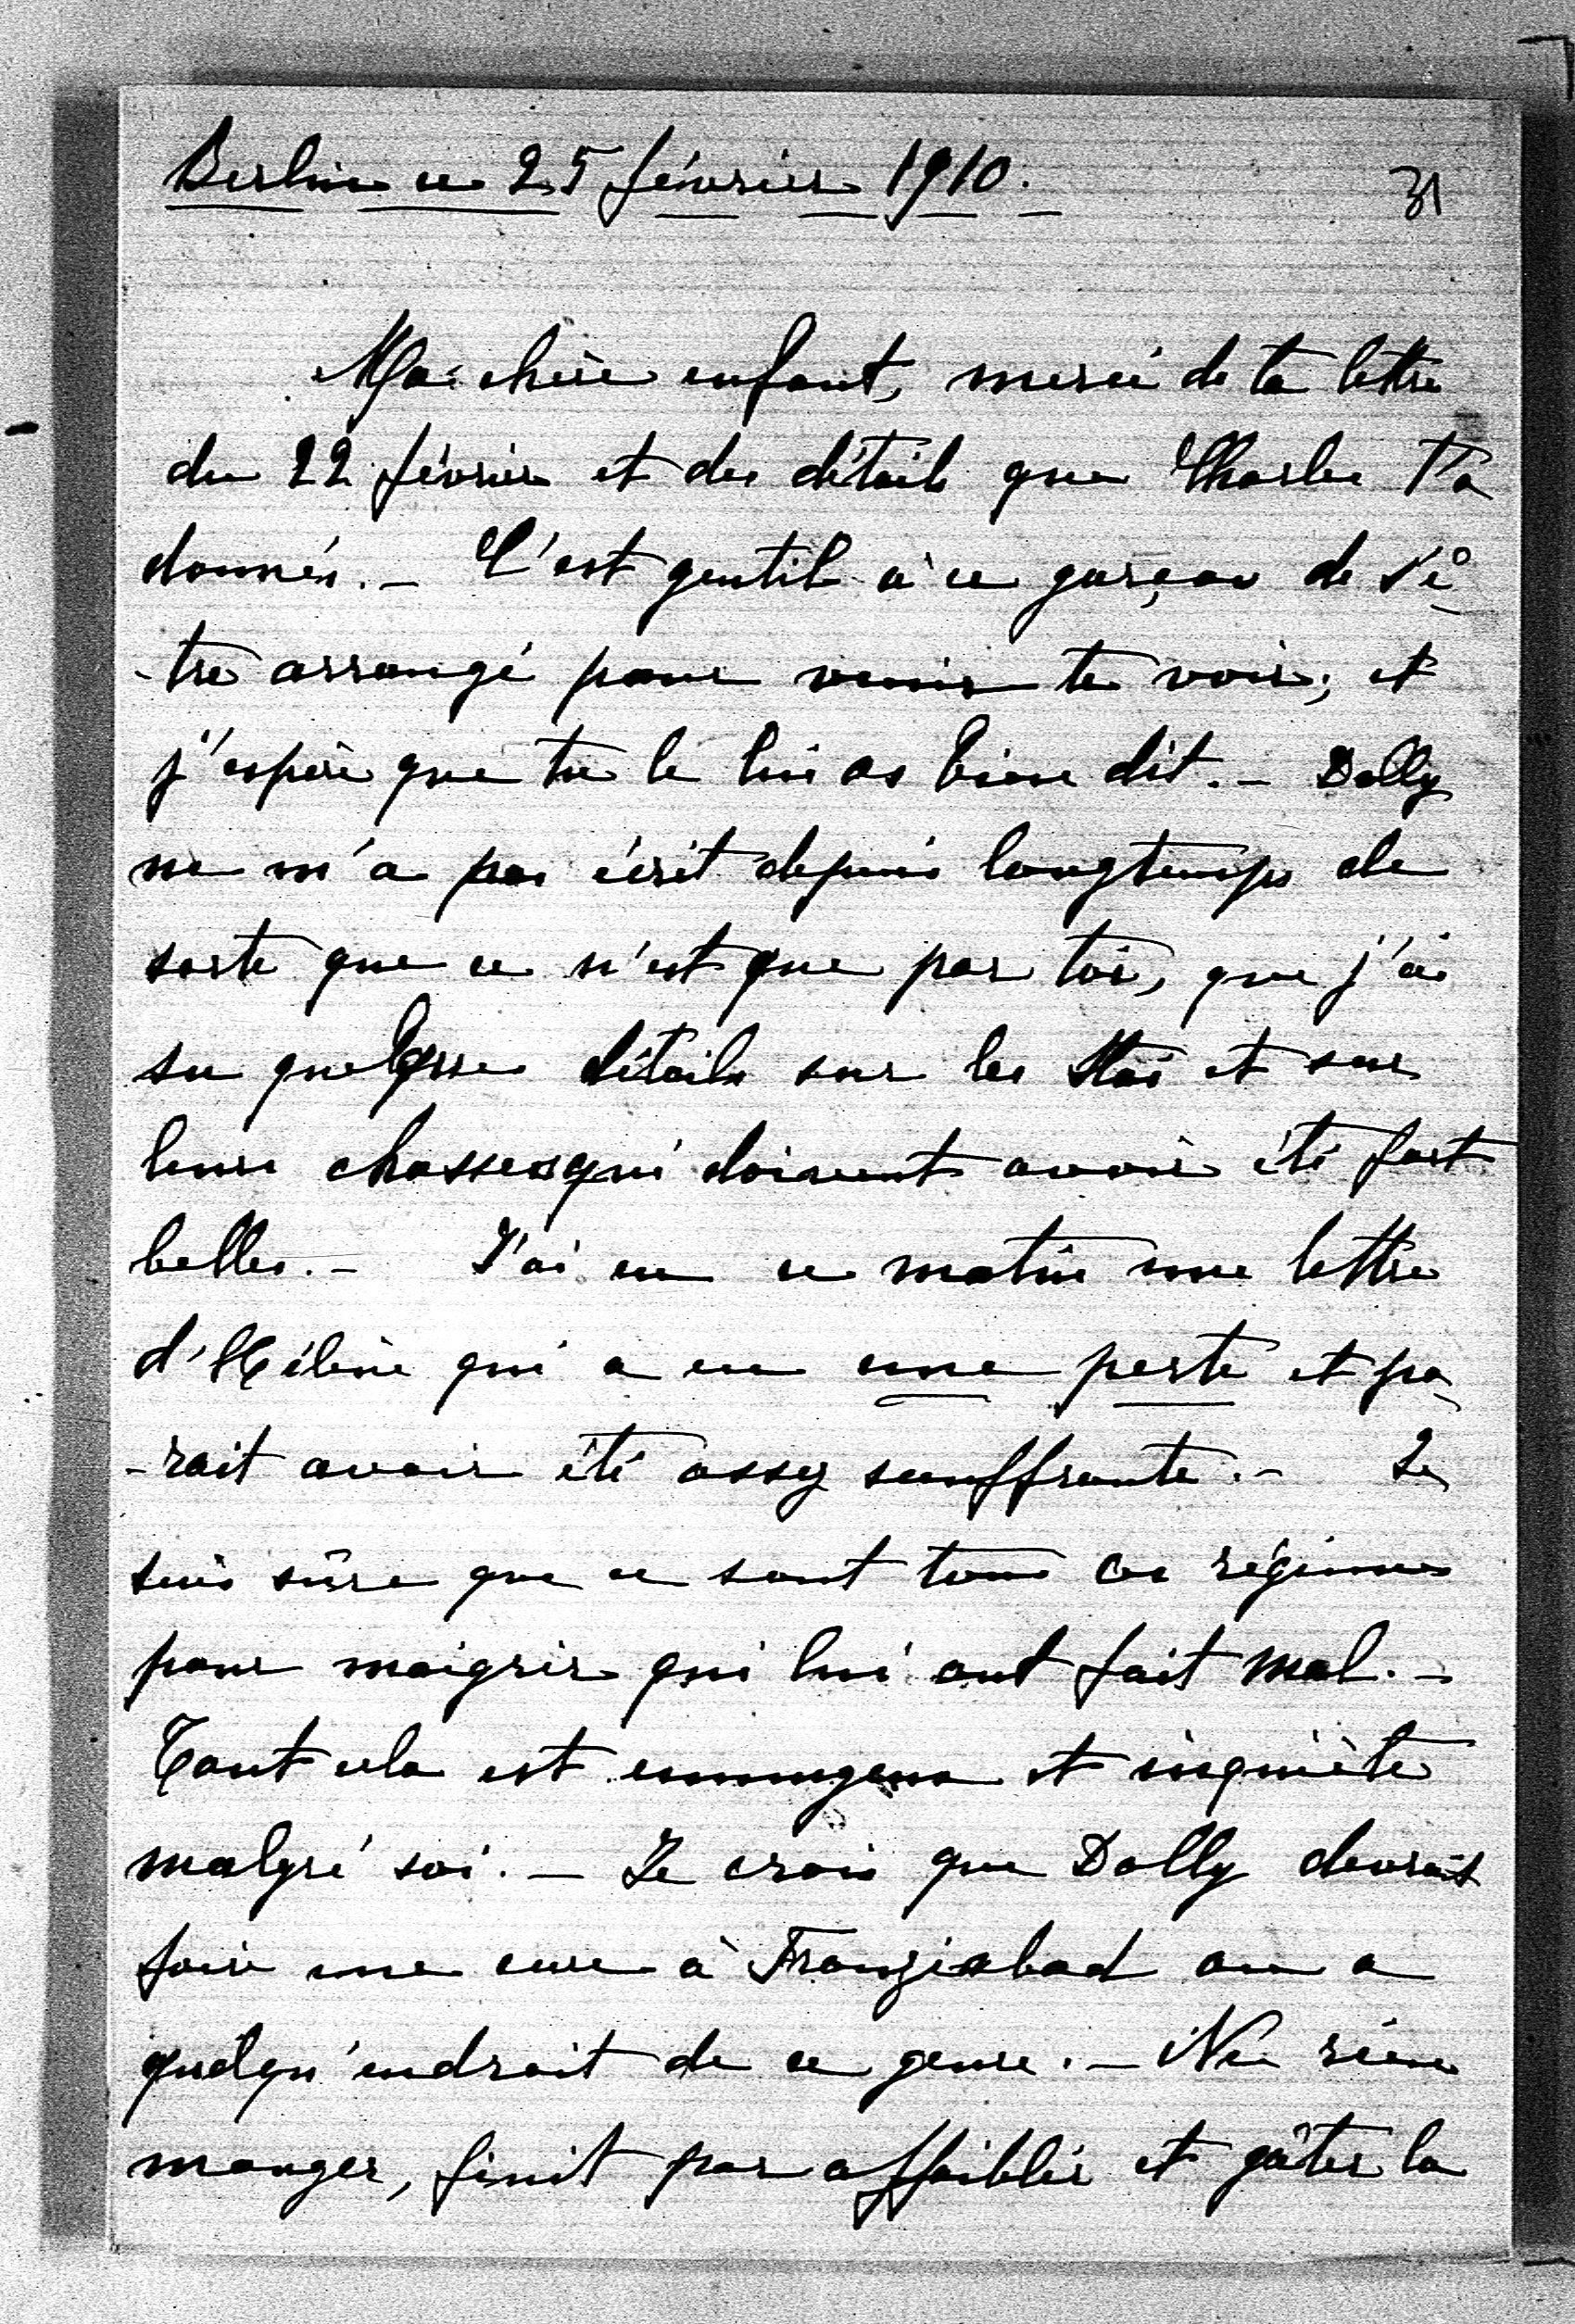 Berlin ce 25 février 1910.
31
Ma chère enfant, merci de ta lettre
du 22 février et des détails que Charles t'a
donnés. – C'est gentil à ce garçon de s'ê-
-tre arrangé pour venir te voir, et
j'espère que tu le lui as bien dit. – Dolly
ne m'a pas écrit depuis longtemps de
sorte que ce n'est que par toi, que j'ai
su quelques détails sur les et sur
leurs chasses qui doivent avoir été fort
belles. – J'ai eu ce matin une lettre
d'Hélène qui a eu une perte et pa-
-rait avoir été assez souffrante. – Je
suis sûre que ce sont tous ces régimes
pour maigrir qui lui ont fait mal. –
Tout cela est ennuyeux et inquiète
malgré soi. – Je crois que Dolly devrait
faire une cure à Franzisbad ou a
quelqu'endroit de ce genre. – Ne rien
manger, finit par affaiblir et gâter la